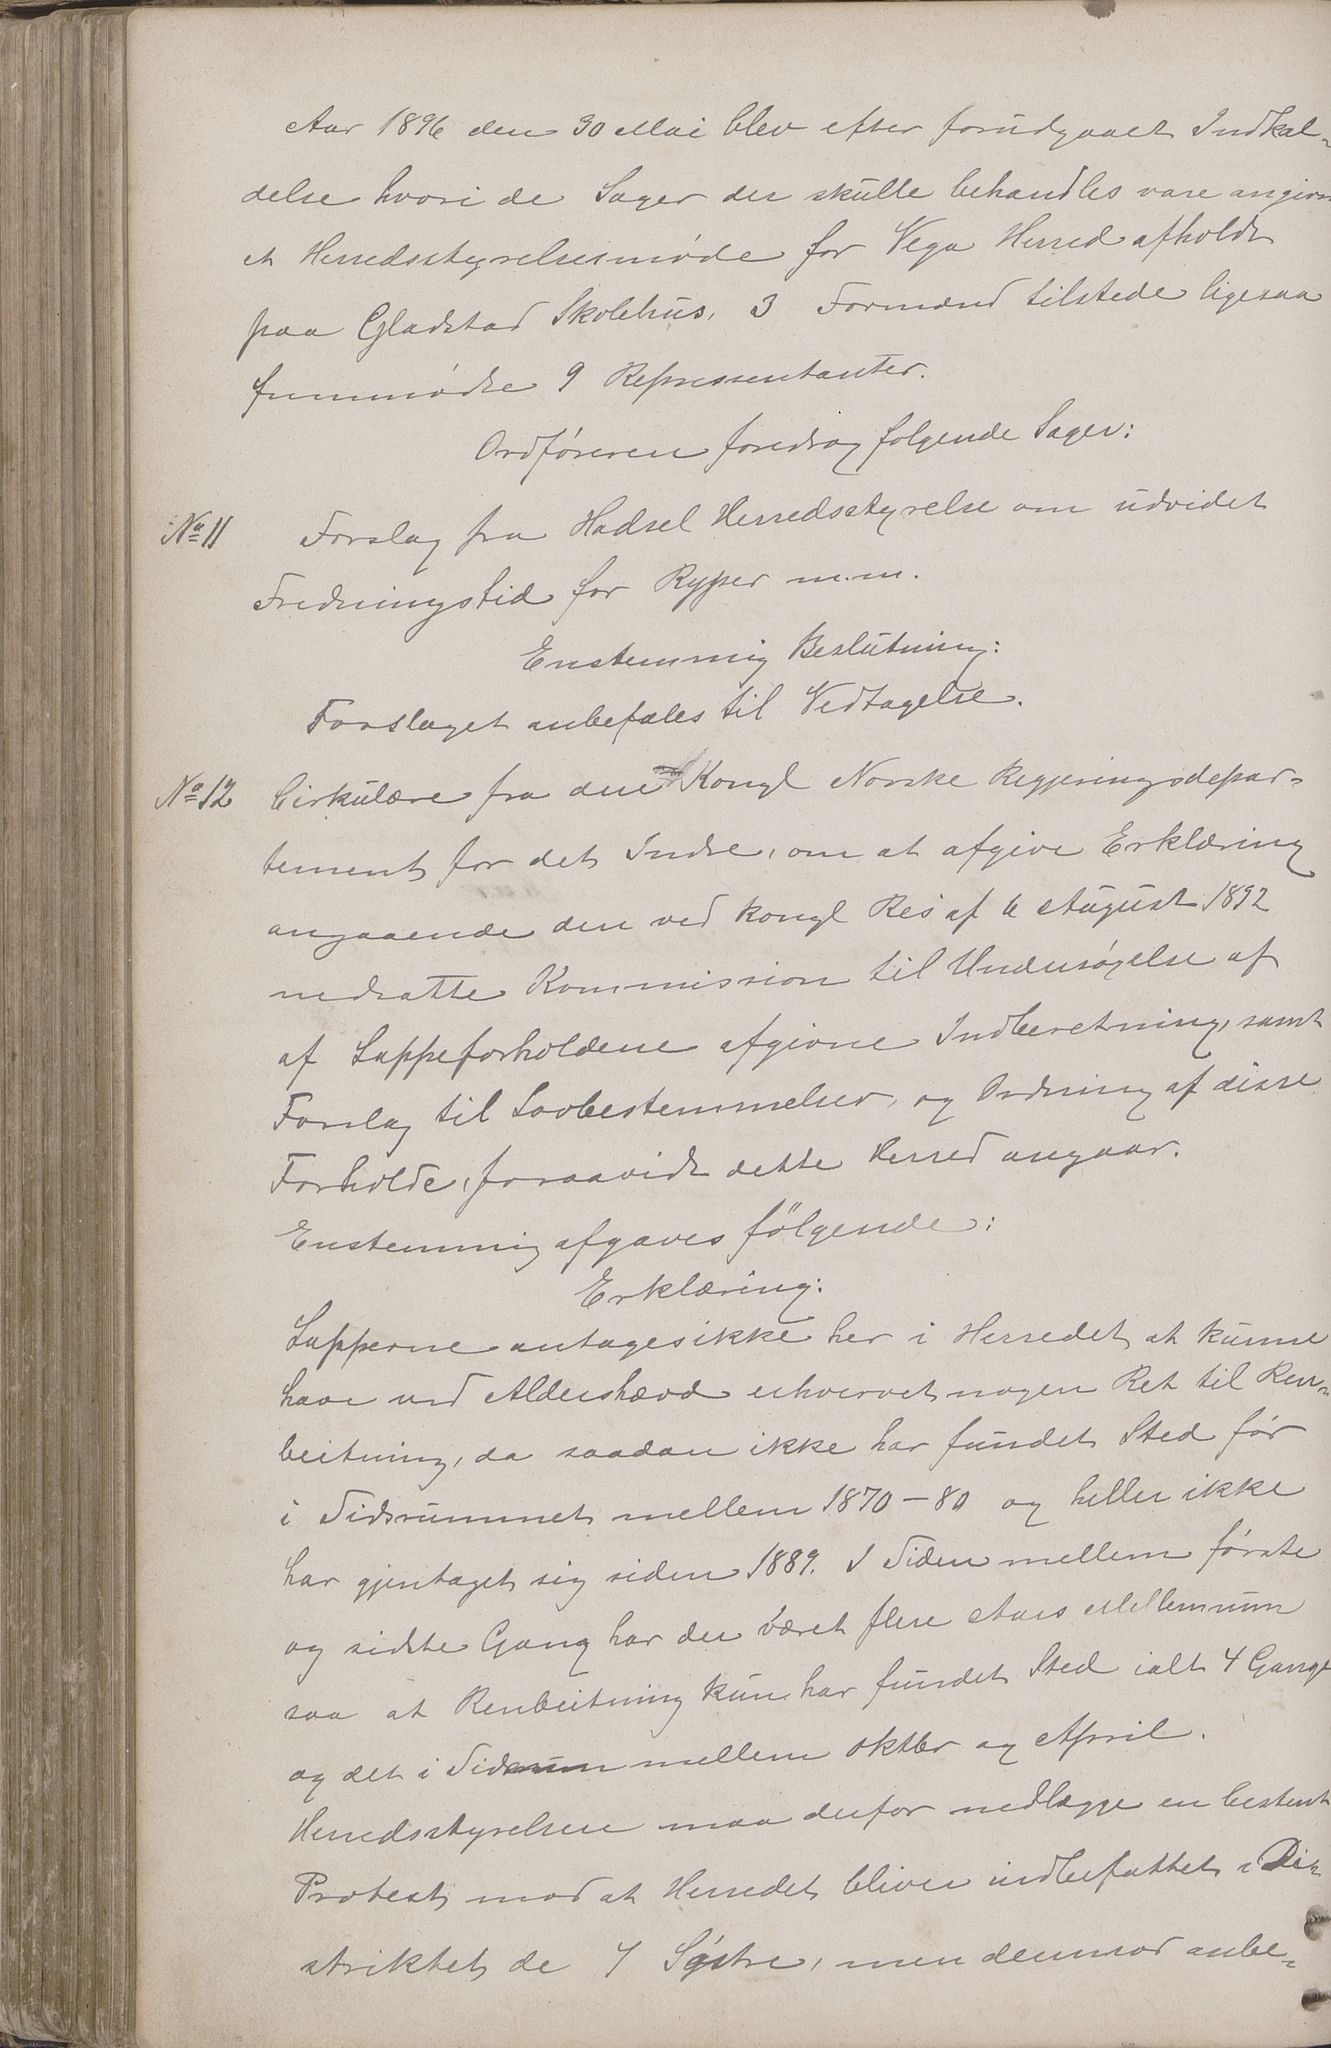 Aar 1896 den 30 Mai blev efter forudgaaet Indkal-
delse hvori de Sager der skulle behandles vare angivne
et Herredsstyrelsesmøde for Vega Herred afholdt
paa Gladstad Skolehus, 3 Formænd tilstede ligesaa
fremmødte 9 Repressentanter.
Ordføreren foredrog følgende Sager:
No 11 Forslag fra Hadsel Herredsstyrelse om udvidet
Fredningstid for Ryper m.m.
Enstemmig Beslutning:
Forslaget anbefales til Vedtagelse.
No 12 Cirkulære fra den Kongl Norske Regjeringsdepar-
tement for det Indre, om at afgive Erklæring
angaaende den ved kongl Res af 6 August 1892
nedsatte Kommission til Undersøgelse af
af Lappeforholdene afgivne Indberetning, samt
Forslag til Lovbestemmelser, og Ordning af disse
Forholde, forsaavidt dette Herred angaar.
Enstemmig afgaves følgende:
Erklæring:
Lapperne antages ikke her i Herredet at kunne
have ved Aldershævd erhvervet nogen Ret til Ren-
beitning, da saadan ikke har fundet Sted før
i Tidsrummet mellem 1870-80 og heller ikke
har gjentaget sig siden 1889. I Tiden mellem første
og sidste Gang har der været flere Aars Mellemrum
saa at Renbeitning kun har fundet Sted ialt 4 Gange
og det i Tidsrum mellem Oktbr og April.
Herredsstyrelsen maa derfor nedlægge en bestemt
Protest mod at Herredet bliver indbefattet i Di-
striktet de 7 Søstre, men derimod anbe-